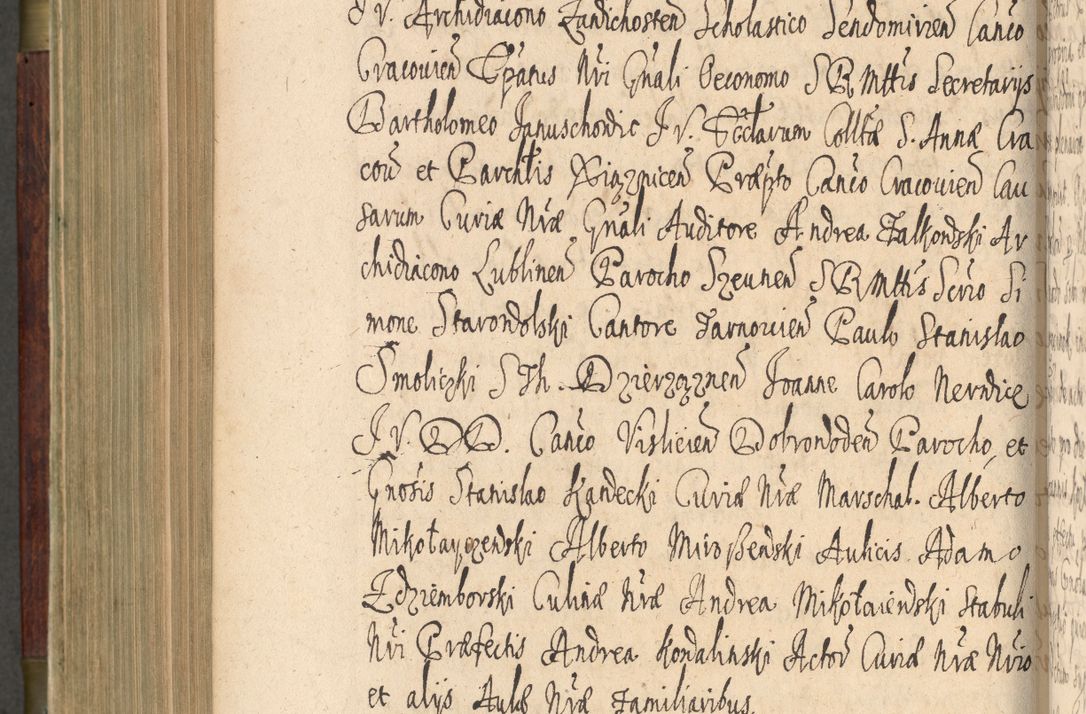 J V. Archidiacono Zavichosten Scholastico Sendomirien Canco
Cracovien Epatus Nri Gnali Oeconomo S R Mttis Secretarijs
Bartholomeo Januschovic J V. Ecclarum Colltæ S. Annæ Cra
cov et Parchlis Xiąznicen Præpto Canco Cracovien Cau
sarum Curiæ Nræ Gnali Auditore Andrea Zalkowski Ar
chidiacono Lublinen Parocho Szeunen S R Mttis Scrio Si
mone Starovolski Cantore Tarnovien Paulo Stanislao
Smoliczki S Th. D Dzierząznen Joanne Carolo Nervice
J V. DD. Canco Vislicien Dobrovoden Parocho, et
Gnosis Stanislao Kandecki Curiæ Nræ Marschal. Alberto
Mikołayczewski Alberto Miroßewski Aulicis Adamo
Zdziemborski Culinæ Nræ Andrea Mikołaiewski Stabuli
Nri Præfectis Andrea Kowalinski Actor Curiæ Nræ Nrio
et alijs Aulæ Nræ Familiaribus.